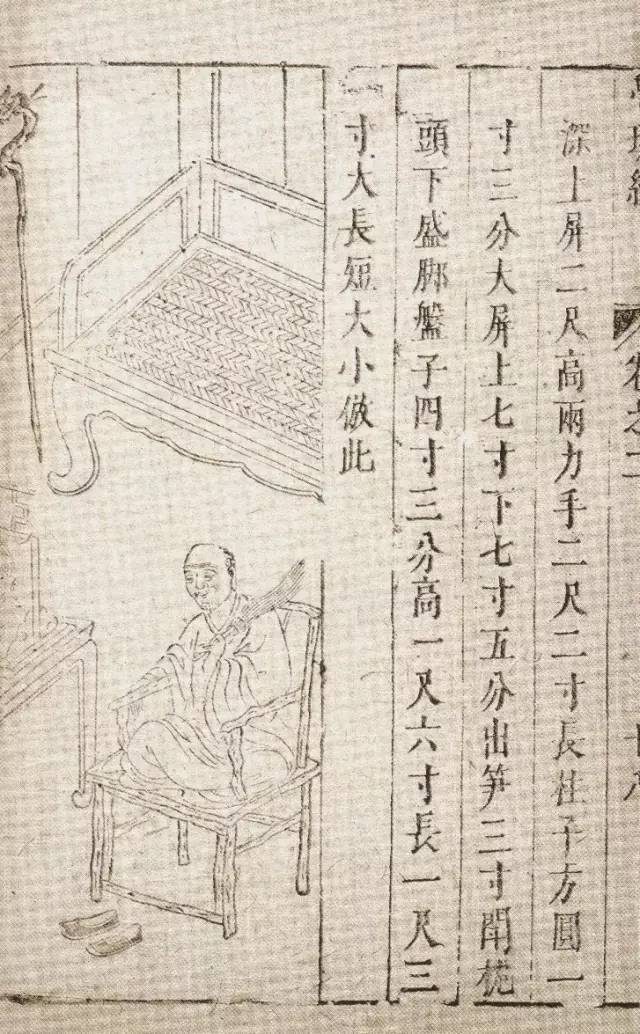 班經 卷之二
深上屏二尺高兩力手二尺二寸長柱子方圓一
寸三分大屏上七寸下七寸五分出笋三寸閗枕
頭下盛脚盤子四寸三分高一尺六寸長一尺三
寸大長短大小倣此